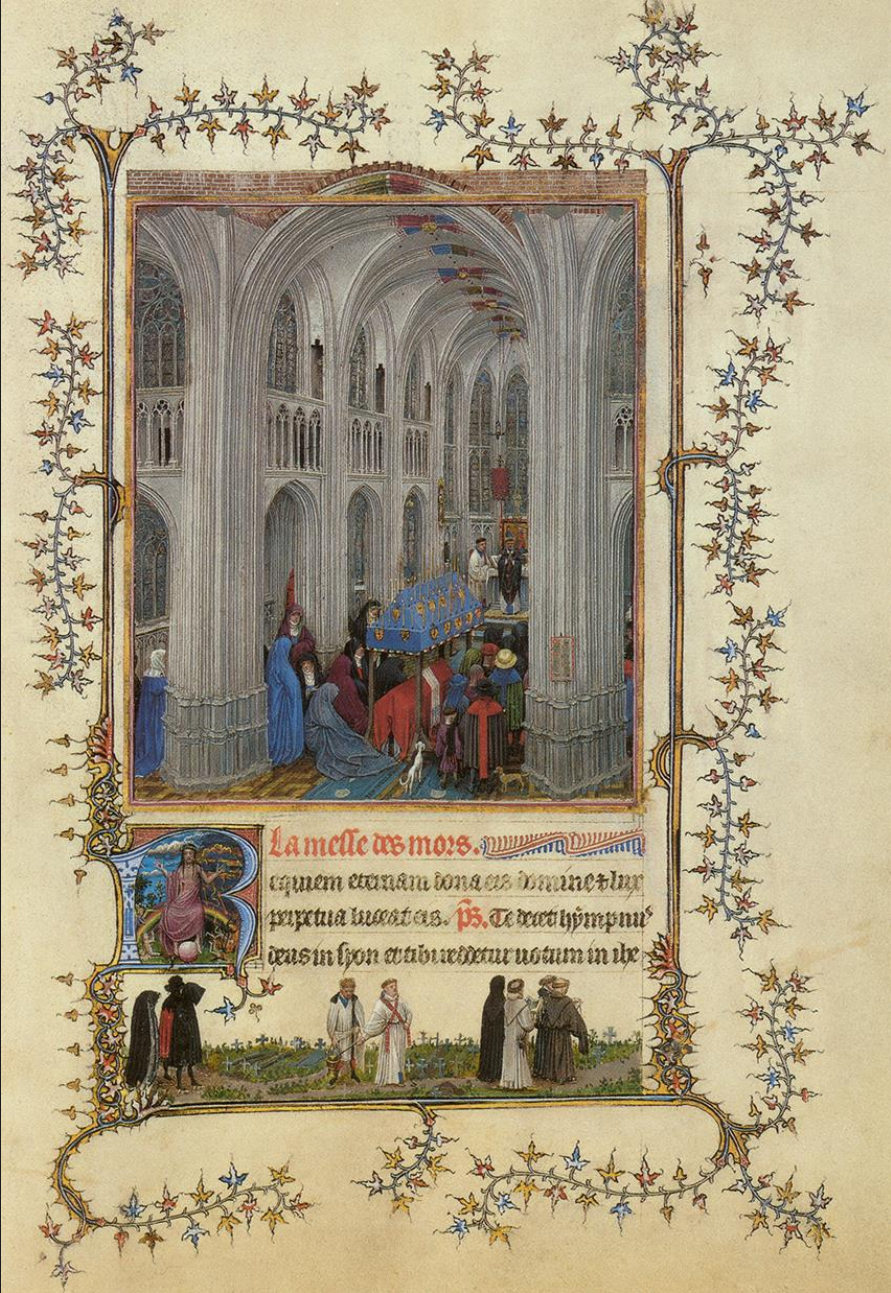 La messe des mors.
Requiem eternam dona eis domine & lux
perpetua luceat eis. ps. Te decet hÿmpnus
deus in syon et tibi reddetur uotum in ihe